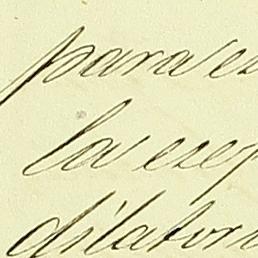 para es
la exep
dilator